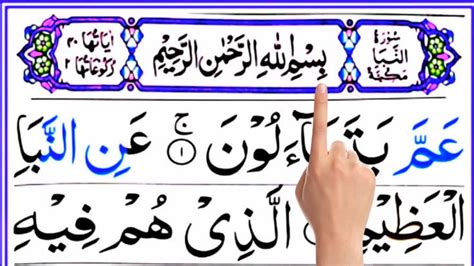 سُوْرَةُ
النَّبَا
مَكِّيَّةٌ
بِسْمِ اللهِ الرَّحْمٰنِ الرَّحِيْمِ
اٰيَاتُهَا ۴۰
رُكُوْعَاتُهَا ۲
عَمَّ يَتَسَآءَلُوْنَ ۚ ۝۱ عَنِ النَّبَاِ
الْعَظِيْمِ الَّذِىْ هُمْ فِيْهِ